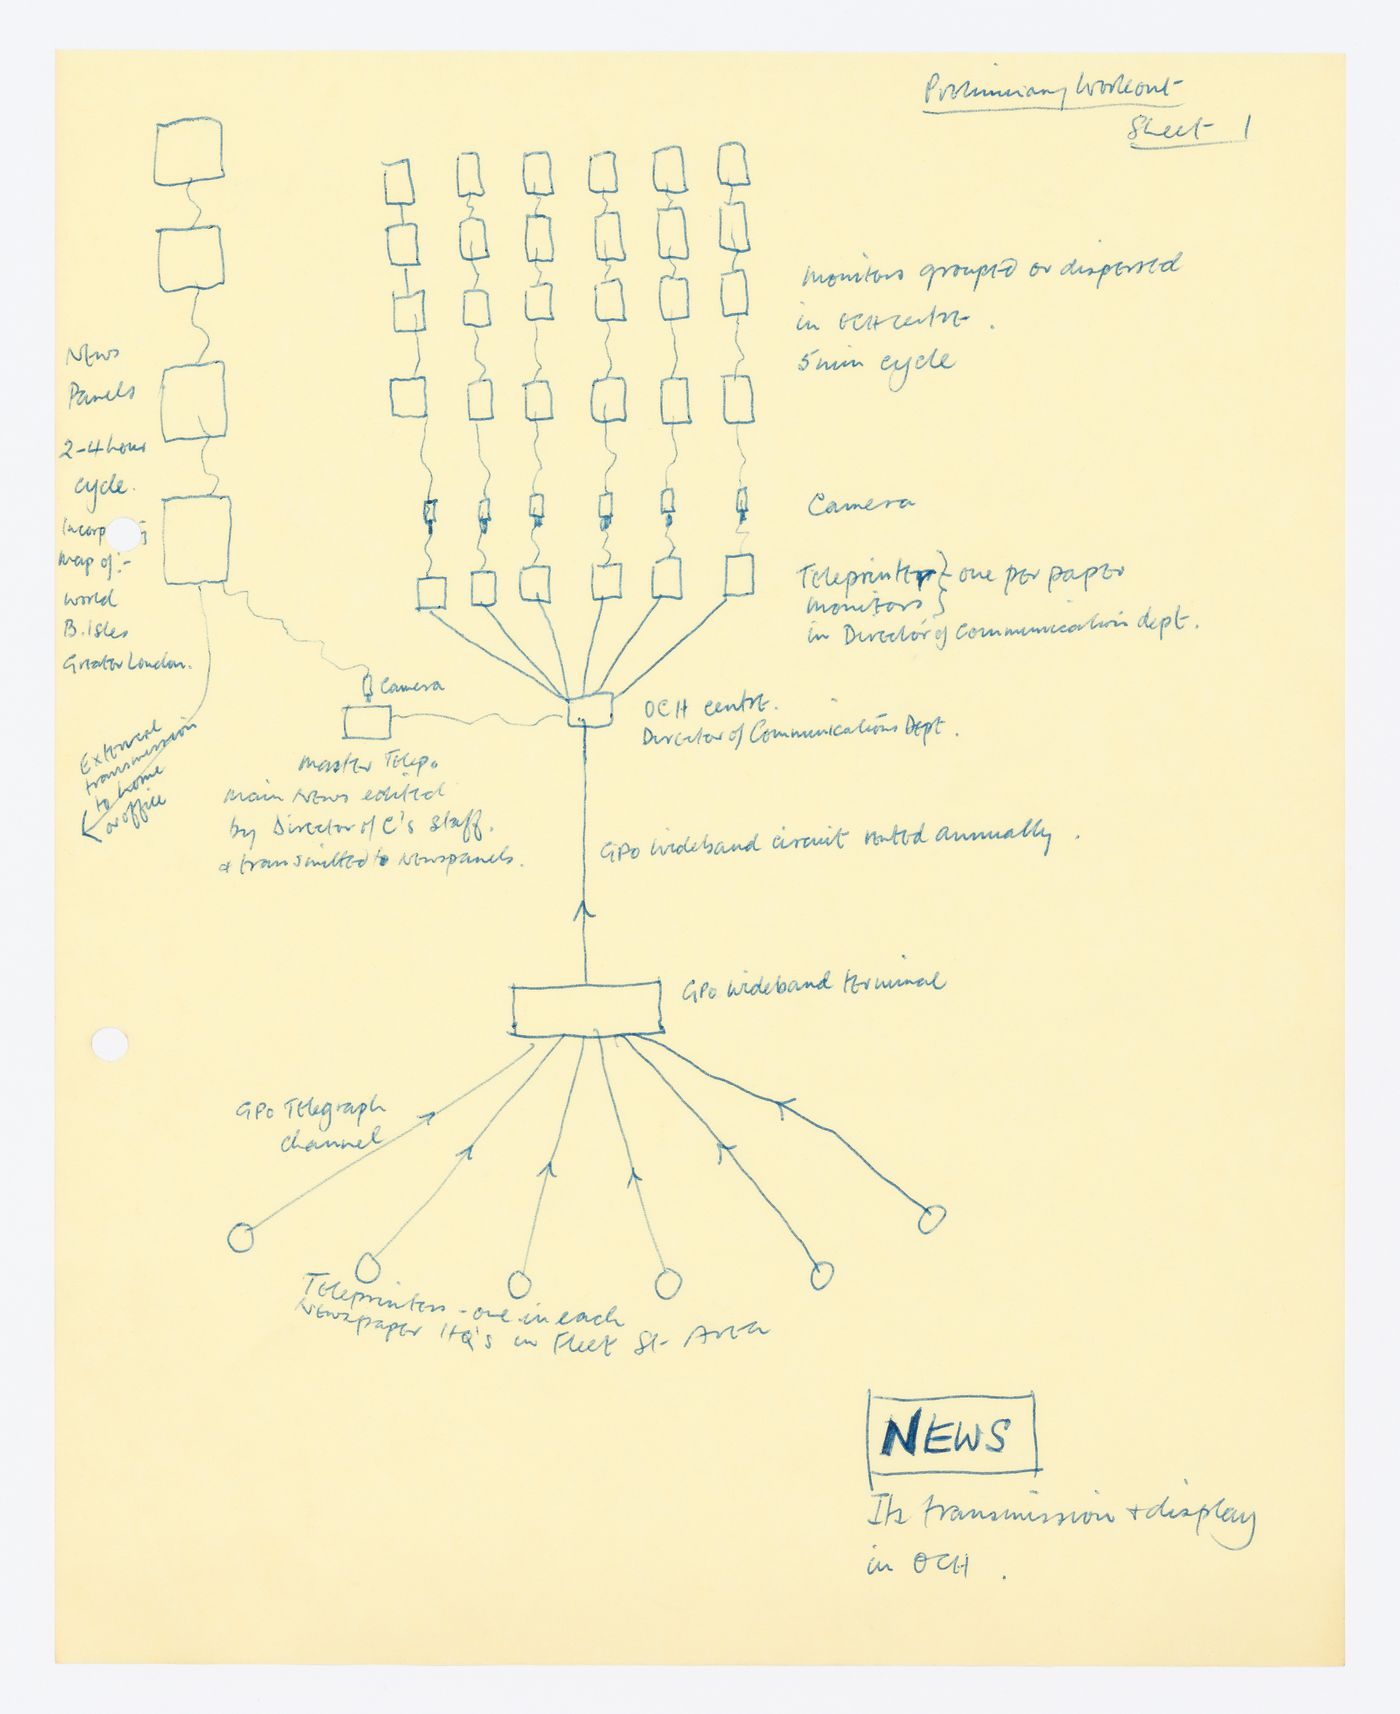 Preliminary Workout
Sheet 1
Monitors grouped or dispersed
in OCH centre.
5 min cycle
News
Panels
2-4 hour
cycle.
Map of:-
World
B. Isles
Greater London.
Camera
Teleprinter } one per paper
Monitors }
in Director of Communication dept.
Camera
OCH centre.
Director of Communications Dept.
External
transmission
to home
or office
Master Telep.
Main News edited
by Director of C's Staff.
& transmitted to Newspanels.
GPO Wideband circuit rented annually.
GPO Wideband terminal
GPO Telegraph
channel
Teleprinters - one in each
Newspaper HQ's in Fleet St. Area
NEWS
Its transmission & display
in OCH.